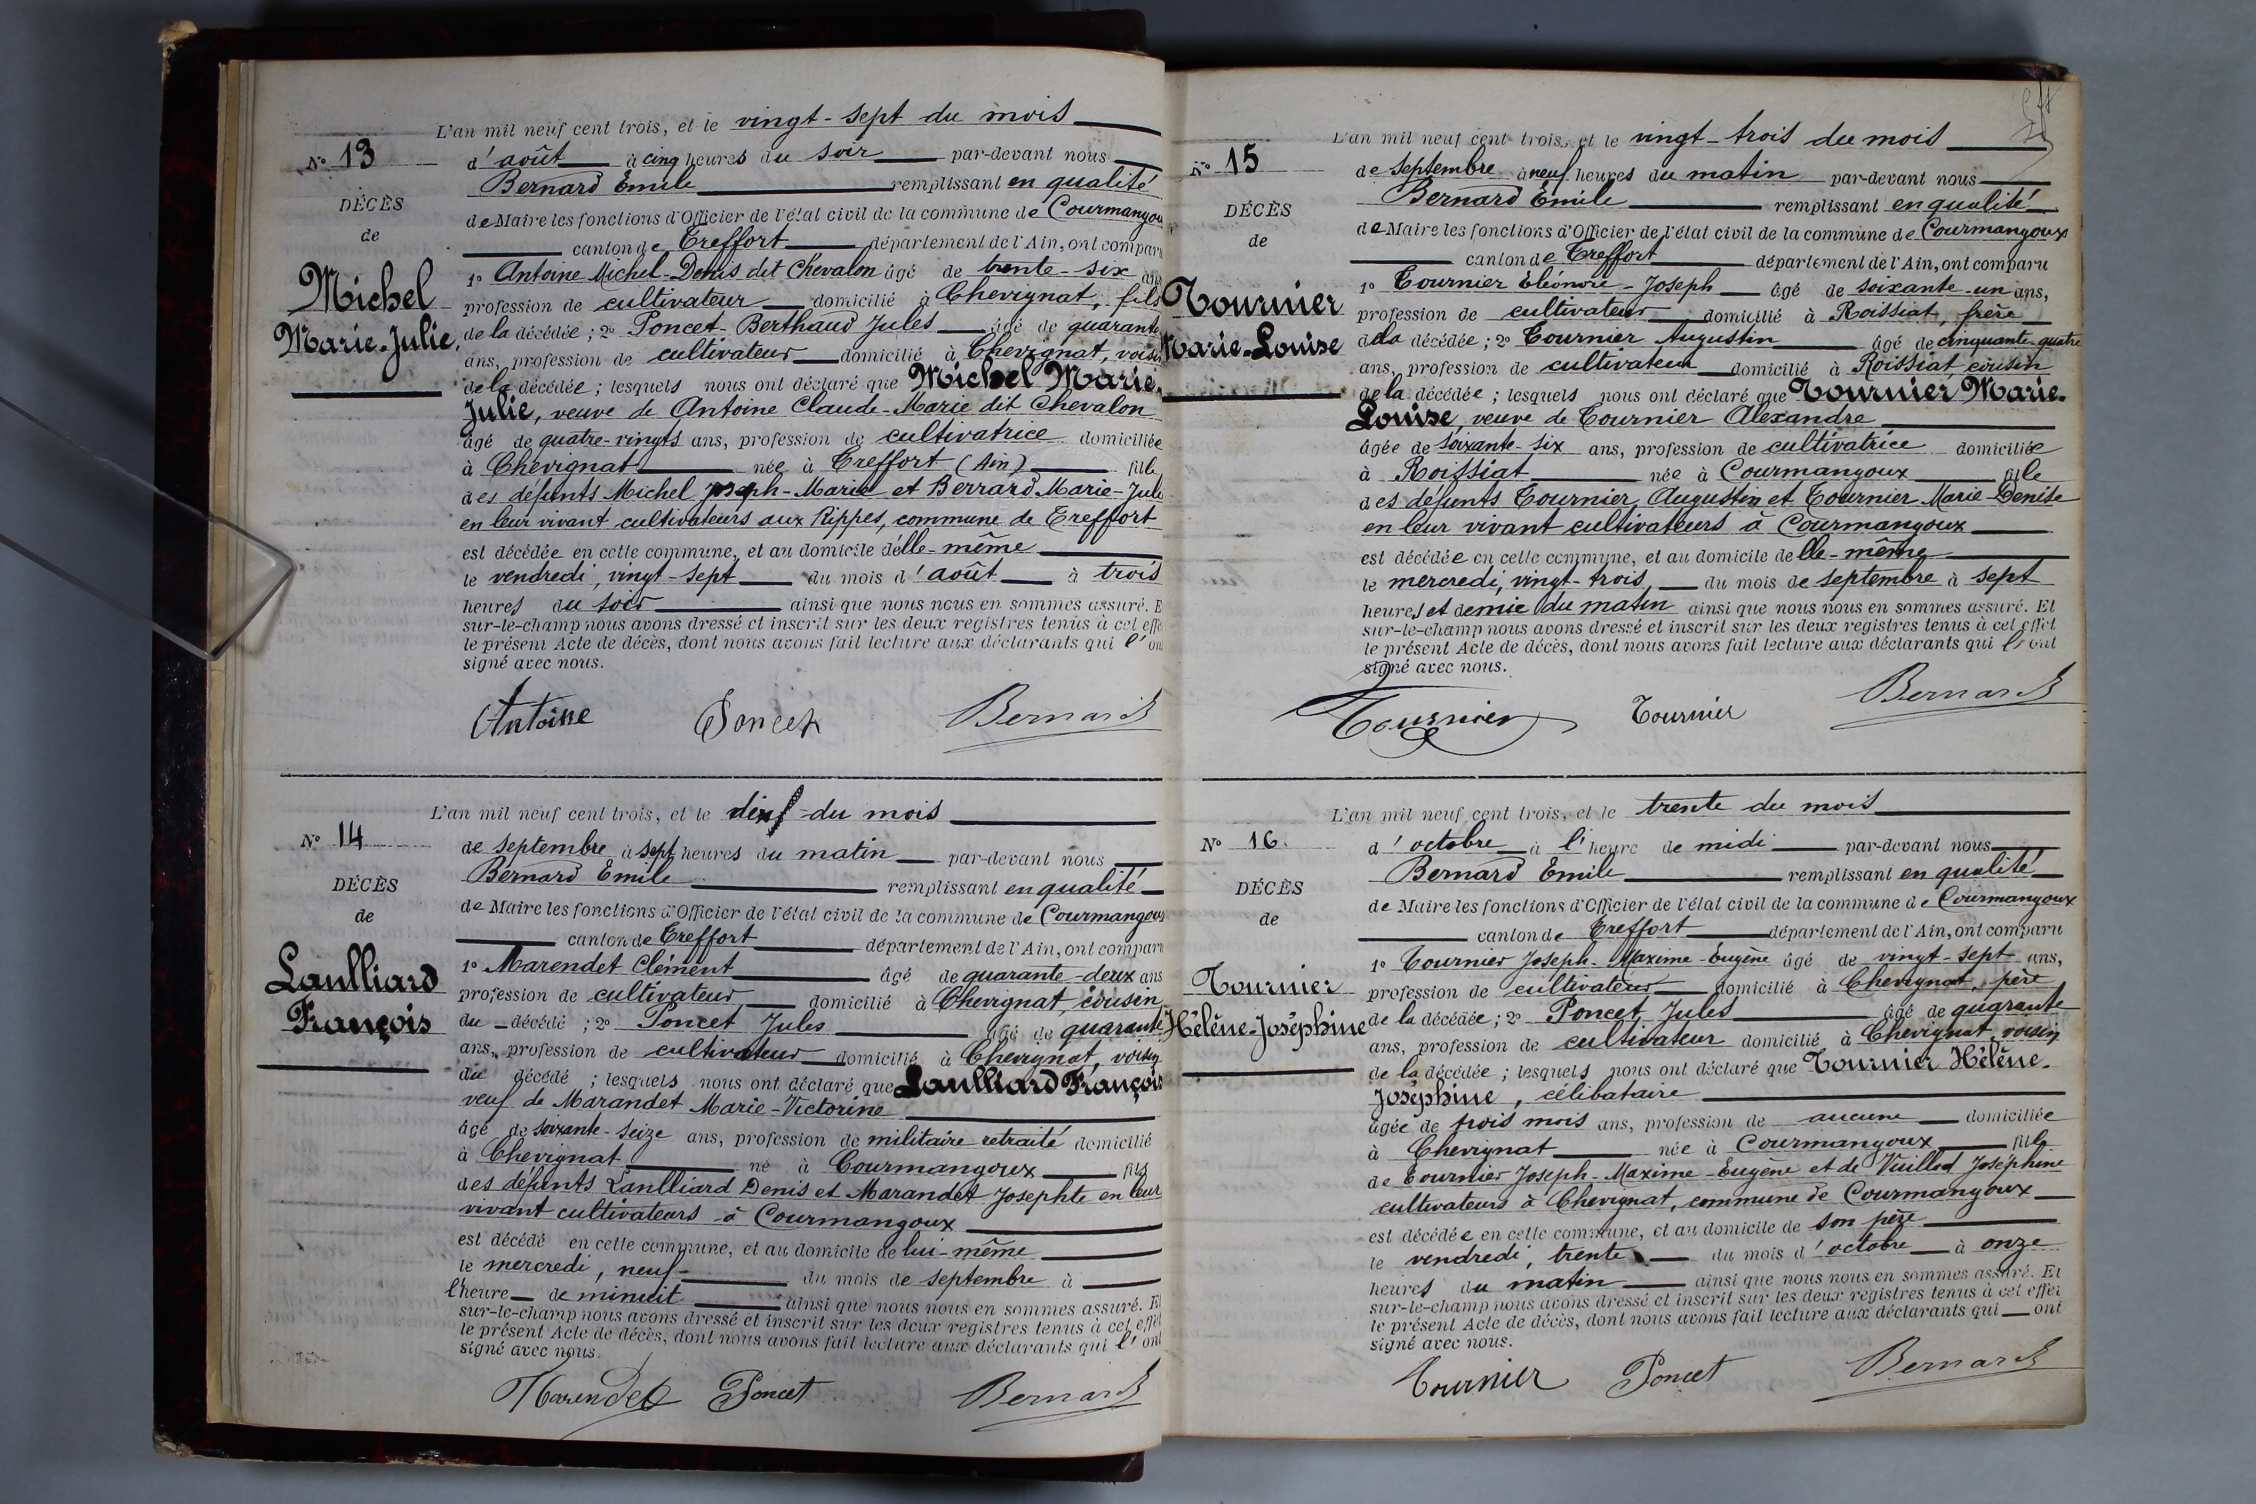 L'an mil neuf cent trois, et le vingt-sept du mois
N° 13
d'août à cinq heures du soir par-devant nous
Bernard Emile remplissant en qualité
DÉCÈS
de Maire les fonctions d'Officier de l'état civil de la commune de Courmangou
de
canton de Treffort département de l'Ain, ont comparu
1° Antoine Michel-Denis dit Chevalon âgé de trente-six ans
Michel
profession de cultivateur domicilié à Chevignat, fils
Marie-Julie.
de la décédée; 2° Poncet-Berthaud Jules âgé de quarante
ans, profession de cultivateur domicilié à Chevignat, voisin
de la décédée; lesquels nous ont déclaré que Michel Marie-
Julie, veuve de Antoine Claude-Marie dit Chevalon
âgé de quatre-vingts ans, profession de cultivatrice domiciliée
à Chevignat née à Treffort (Ain) fille
des défunts Michel Joseph-Marie et Berrard Marie-Jule
en leur vivant cultivateurs aux Rippes, commune de Treffort
est décédée en cette commune, et au domicile d'elle-même
le vendredi, vingt-sept du mois d'août à trois
heures du soir ainsi que nous nous en sommes assuré. E
sur-le-champ nous avons dressé et inscrit sur les deux registres tenus à cet effe
le présent Acte de décès, dont nous avons fait lecture aux déclarants qui l'on
signé avec nous.
Antoine Poncet Bernard
L'an mil neuf cent trois, et le neuf du mois
N° 14
de septembre à sept heures du matin par-devant nous
Bernard Emile remplissant en qualité
DÉCÈS
de Maire les fonctions d'Officier de l'état civil de la commune de Courmangoux
de
canton de Treffort département de l'Ain, ont comparu
1° Marendet Clément âgé de quarante-deux ans
Laulliard
profession de cultivateur domicilié à Chevignat, cousin
François
du décédé; 2° Poncet Jules âgé de quarante
ans, profession de cultivateur domicilié à Chevignat, voisin
du décédé; lesquels nous ont déclaré que Laulliard François
veuf de Marandet Marie-Victorine
âgé de soixante-seize ans, profession de militaire retraité domicilié
à Chevignat né à Courmangoux fils
des défunts Laulliard Denis et Marandet Josephte en leur
vivant cultivateurs à Courmangoux
est décédé en cette commune, et au domicile de lui-même
le mercredi, neuf du mois de septembre à
l'heure de minuit ainsi que nous nous en sommes assuré. Et
sur-le-champ nous avons dressé et inscrit sur les deux registres tenus à cet effet
le présent Acte de décès, dont nous avons fait lecture aux déclarants qui l'ont
signé avec nous.
Marendet Poncet Bernard
L'an mil neuf cent trois, et le vingt-trois du mois
N° 15
de septembre à neuf heures du matin par-devant nous
Bernard Emile remplissant en qualité
DÉCÈS
de Maire les fonctions d'Officier de l'état civil de la commune de Courmangoux
de
canton de Treffort département de l'Ain, ont comparu
1° Tournier Eléonore-Joseph âgé de soixante-un ans,
Tournier
profession de cultivateur domicilié à Roissiat, frère
Marie-Louise
de la décédée; 2° Tournier Augustin âgé de cinquante-quatre
ans, profession de cultivateur domicilié à Roissiat, cousin
de la décédée; lesquels nous ont déclaré que Tournier Marie-
Louise, veuve de Tournier Alexandre
âgée de soixante-six ans, profession de cultivatrice domiciliée
à Roissiat née à Courmangoux fille
des défunts Tournier Augustin et Tournier Marie-Denise
en leur vivant cultivateurs à Courmangoux
est décédée en cette commune, et au domicile de lle-même
le mercredi, vingt-trois du mois de septembre à sept
heures et demie du matin ainsi que nous nous en sommes assuré. Et
sur-le-champ nous avons dressé et inscrit sur les deux registres tenus à cet effet
le présent Acte de décès, dont nous avons fait lecture aux déclarants qui l'ont
signé avec nous.
Tournier Tournier Bernard
L'an mil neuf cent trois, et le trente du mois
N° 16.
d'octobre à l'heure de midi par-devant nous
Bernard Emile remplissant en qualité
DÉCÈS
de Maire les fonctions d'Officier de l'état civil de la commune de Courmangoux
de
canton de Treffort département de l'Ain, ont comparu
1° Tournier Joseph-Maxime-Eugène âgé de vingt-sept ans,
Tournier
profession de cultivateur domicilié à Chevignat, père
Hélène-Joséphine
de la décédée; 2° Poncet Jules âgé de quarante
ans, profession de cultivateur domicilié à Chevignat, voisin
de la décédée; lesquels nous ont déclaré que Tournier Hélène-
Joséphine, célibataire
âgée de trois mois ans, profession de aucune domiciliée
à Chevignat née à Courmangoux fille
de Tournier Joseph-Maxime-Eugène et de Vuillod Joséphine
cultivateurs à Chevignat, commune de Courmangoux
est décédée en cette commune, et au domicile de son père
le vendredi, trente du mois d'octobre à onze
heures du matin ainsi que nous nous en sommes assuré. Et
sur-le-champ nous avons dressé et inscrit sur les deux registres tenus à cet effet
le présent Acte de décès, dont nous avons fait lecture aux déclarants qui ont
signé avec nous.
Tournier Poncet Bernard